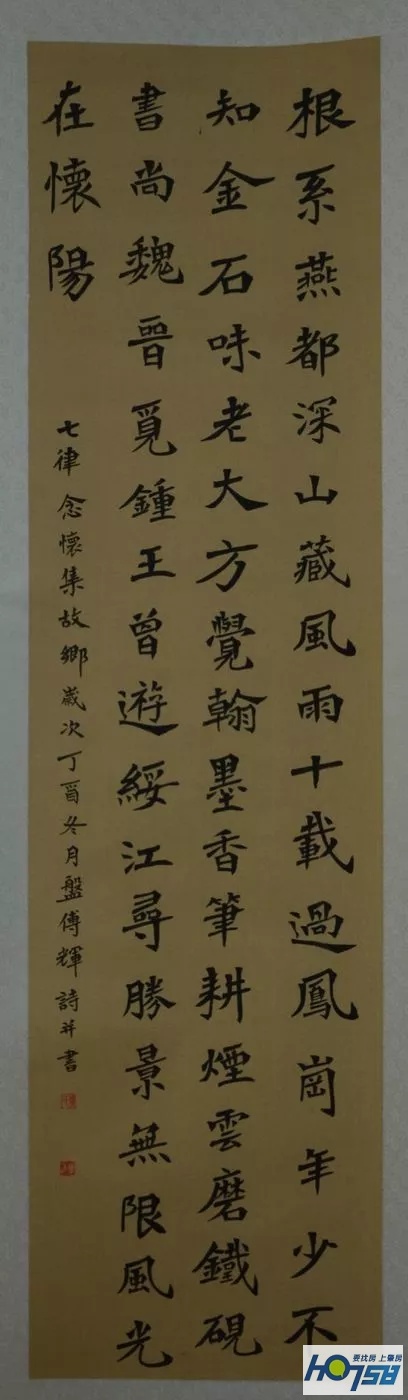 根系燕都深山藏風雨十載過鳳崗年少不
知金石味老大方覺翰墨香筆耕煙雲磨鐵硯
書尚魏晉覓鍾王曾遊綏江尋勝景無限風光
在懷陽
七律念懷集故鄉歲次丁酉冬月盤傳輝詩并書
要找房 上肇房
HO758